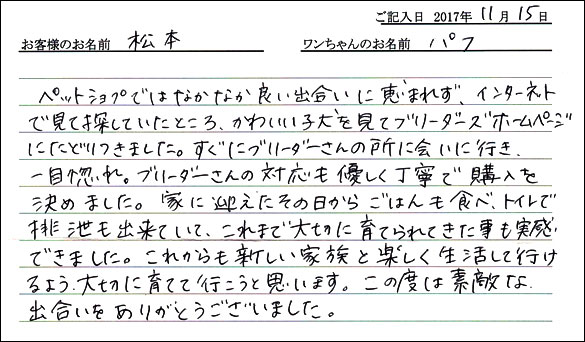 ご記入日 2017年 11月 15日
お客様のお名前 松本 ワンちゃんのお名前 パフ
ペットショップではなかなか良い出合いに恵まれず、インターネット
で見て探していたところ、かわいい子犬を見てブリーダーズホームページ
にたどりつきました。すぐにブリーダーさんの所に会いに行き、
一目惚れ。ブリーダーさんの対応も優しく丁寧で購入を
決めました。家に迎えたその日からごはんも食べ、トイレで
排泄も出来ていて、これまで大切に育てられてきた事も実感
できました。これからも新しい家族と楽しく生活して行け
るよう、大切に育てて行こうと思います。この度は素敵な
出合いをありがとうございました。